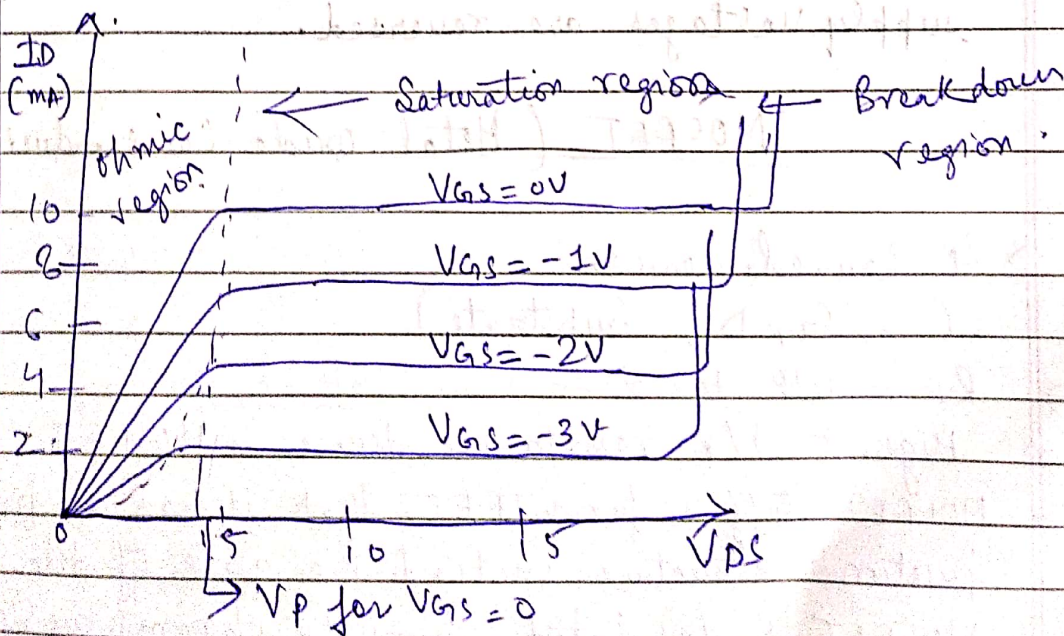 ID
(mA)
ohmic
region
← Saturation region
← Breakdown
region.
10
8
6
4
2
0
VGS = 0V
VGS = -1V
VGS = -2V
VGS = -3V
5
10
15
VDS
↳ VP for VGS = 0